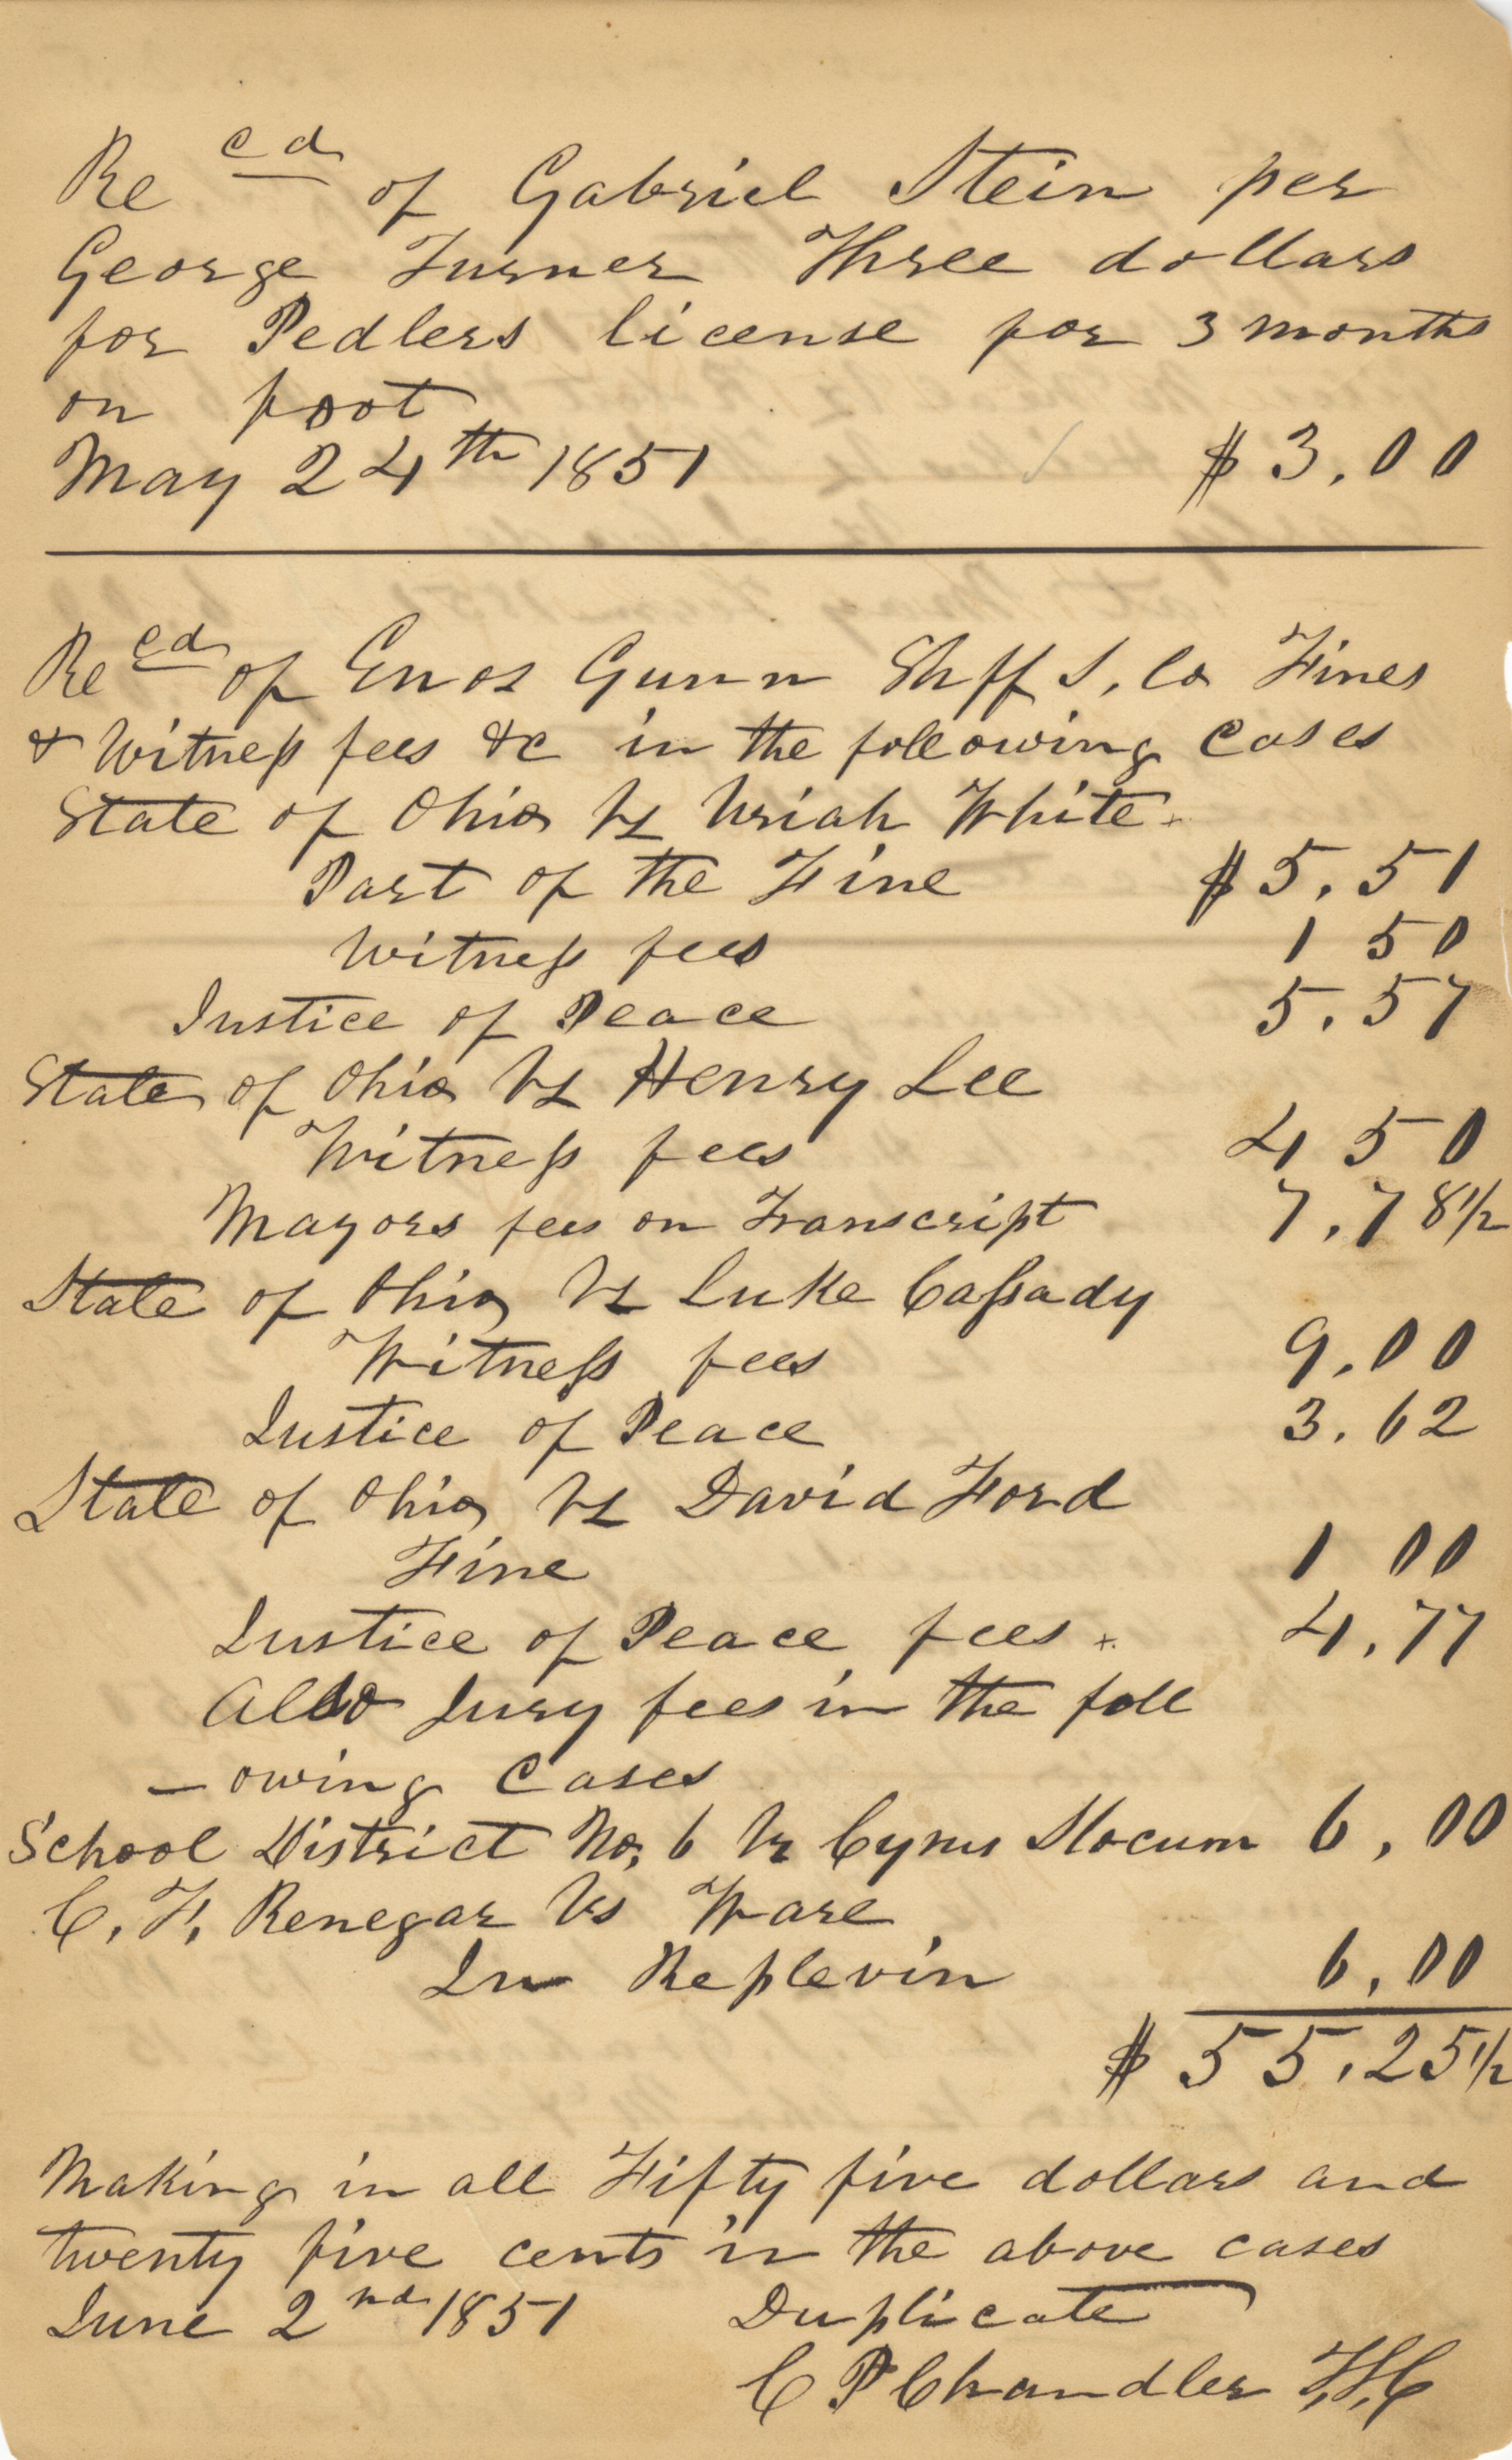 Recd of Gabriel Stein per
George Turner Three dollars
for Pedlers license for 3 months
on foot
May 24th 1851 $3.00
Recd of Enos Gunn Shff S. Co Fines
& Witness fees &c in the following cases
State of Ohio Vs Uriah White
Part of the Fine $5.51
Witness fees 1 50
Justice of Peace 5.57
State of Ohio Vs Henry Lee
Witness fees 4 50
Mayors fees on Transcript 7.78 1/2
State of Ohio Vs Luke Cassady
Witness fees 9.00
Justice of Peace 3.62
State of Ohio Vs David Ford
Fine 1 00
Justice of Peace fees 4.77
Also Jury fees in the foll
-owing Cases
School District No. 6 Vs Cyrus Slocum 6.00
C. F. Renegar Vs Ware
In Replevin 6.00
$55.25 1/2
Making in all Fifty five dollars and
twenty five cents in the above cases
June 2nd 1851 Duplicate
C P Chandler T.S.C